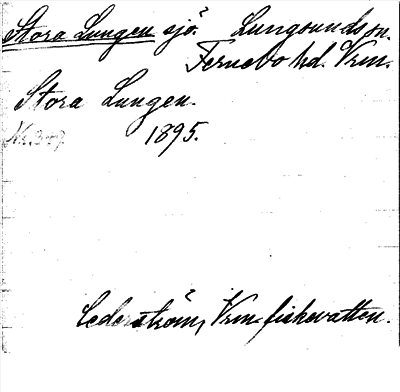 Stora Lungen sjö. Lungsunds sn.
Fernebo hd. Vrm.
Stora Lungen.
1895.
Cederström, Vrm fiskevatten.